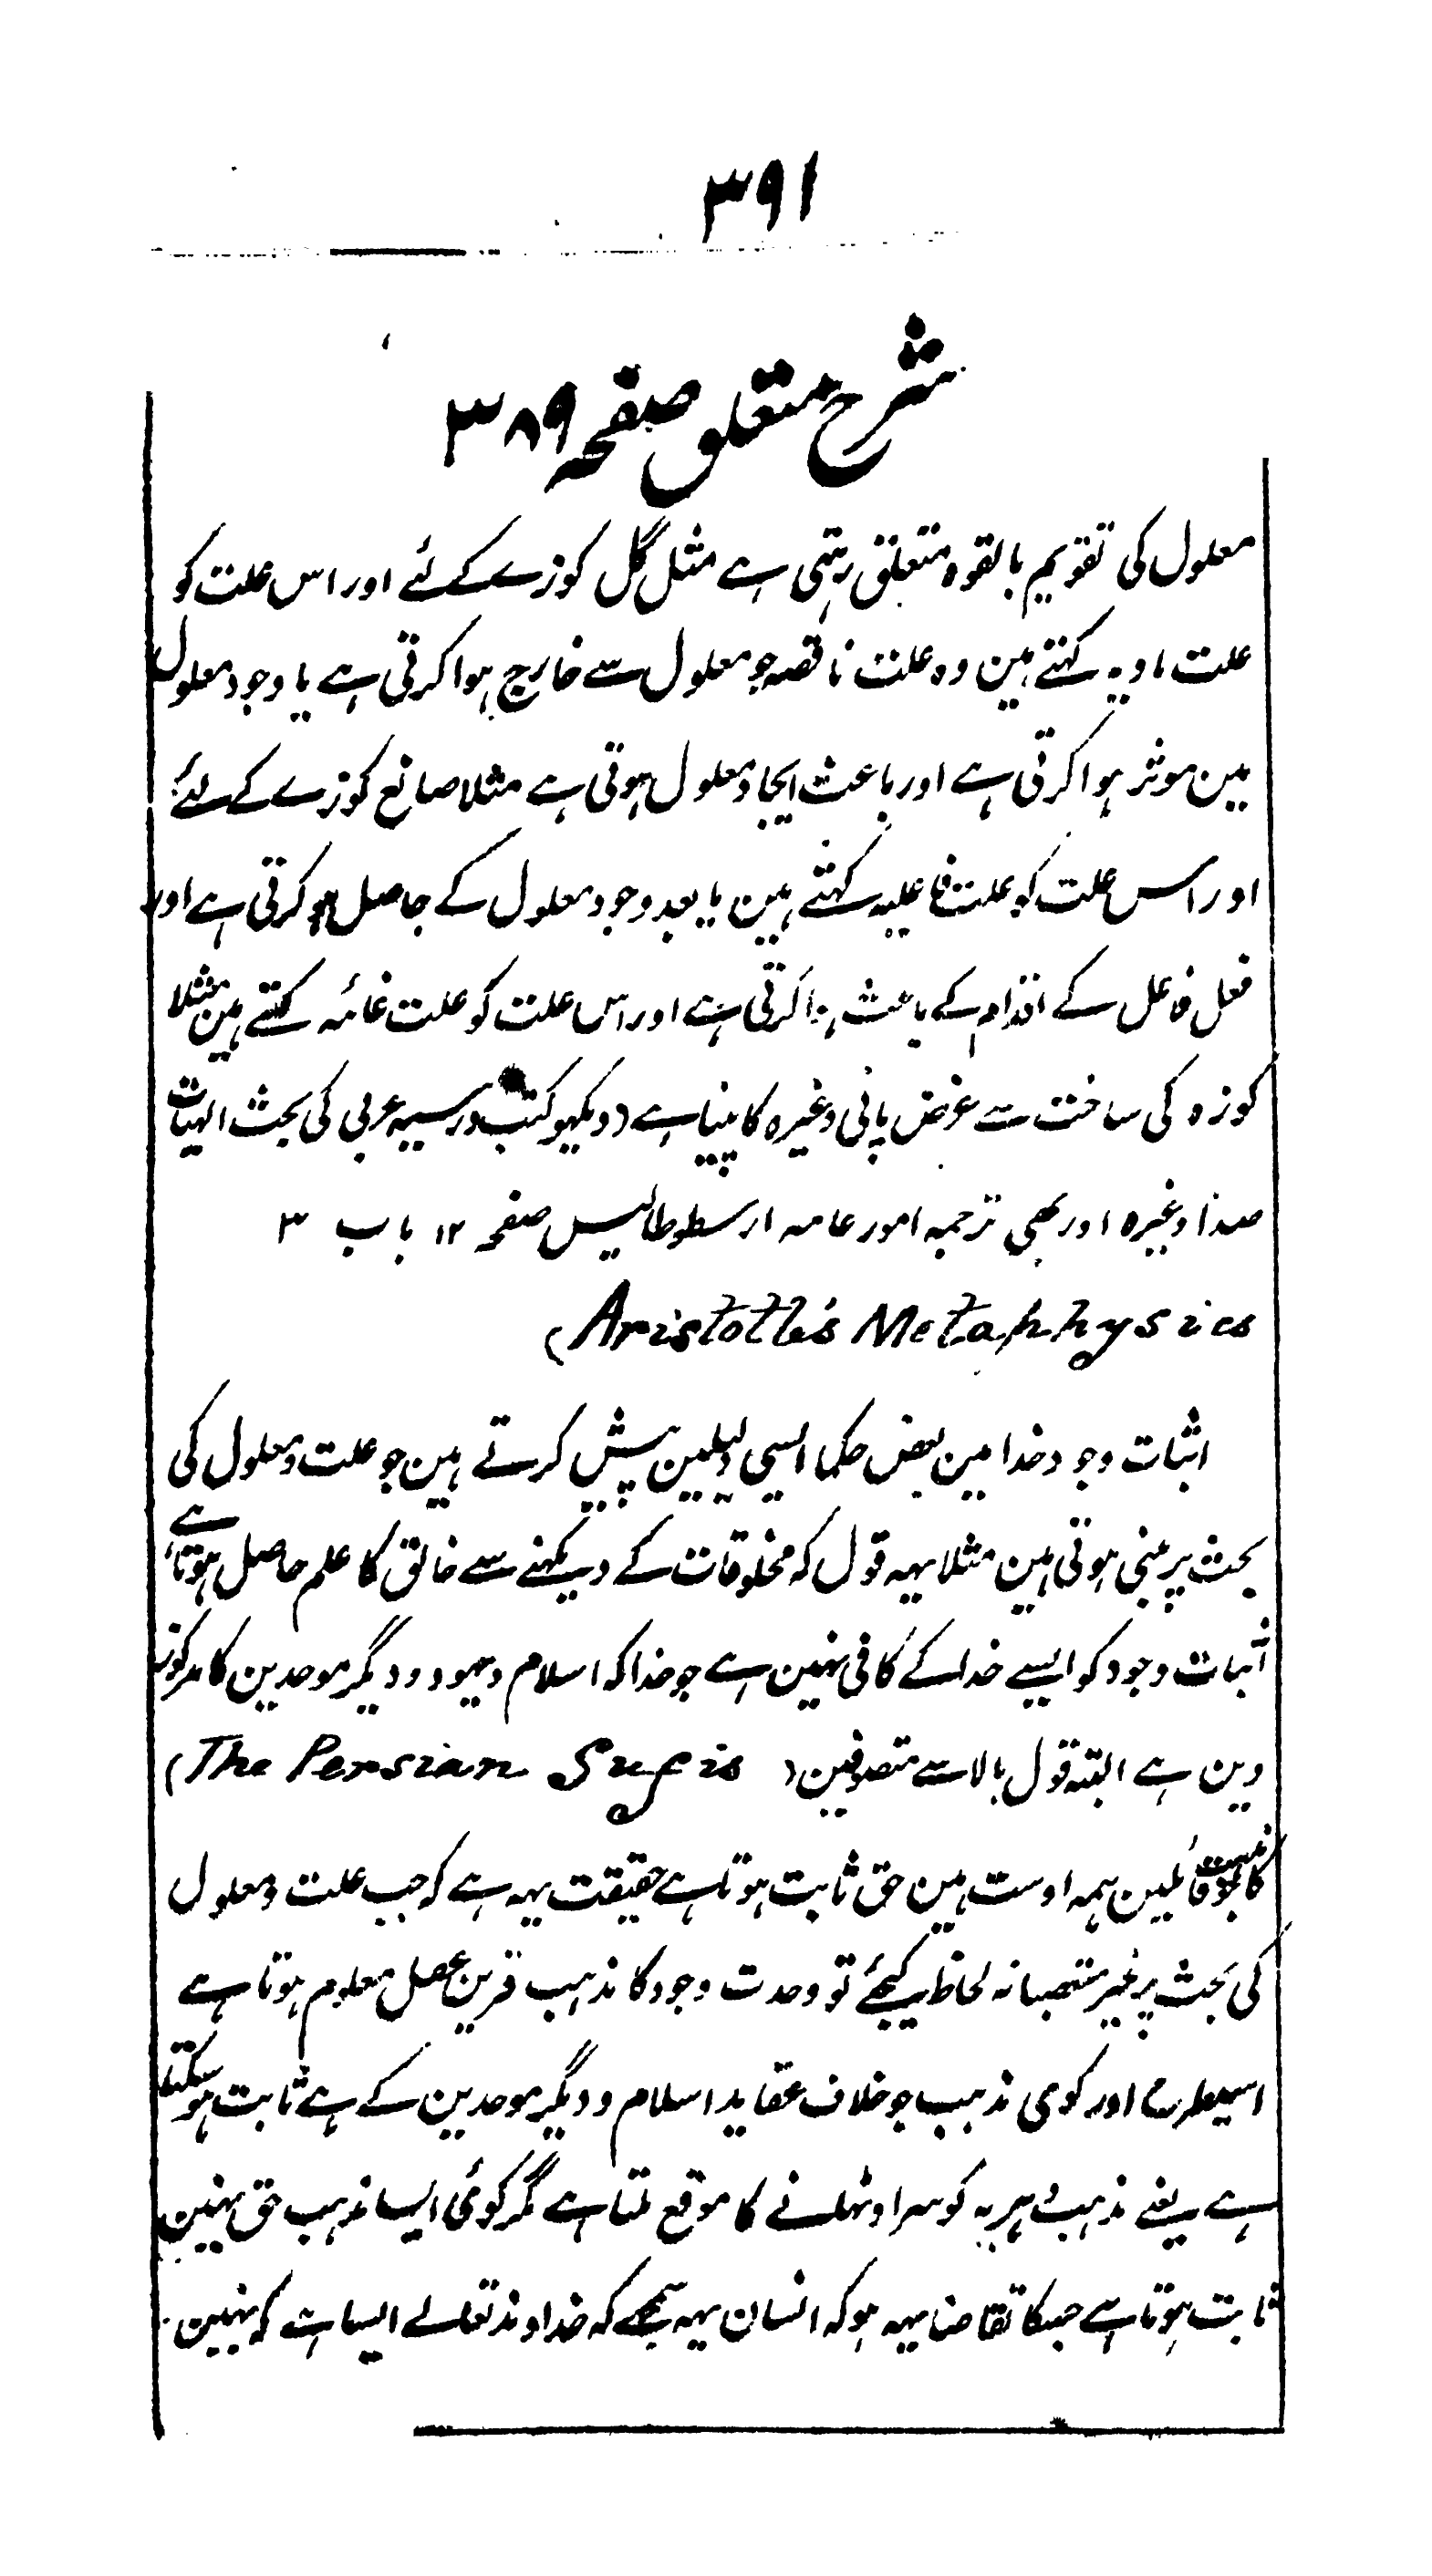 ۳۹۱
شرح متعلق صفحہ ۳۸۹
معلول کی تقویم بالقوہ متعلق رہتی ہے مثل گل کوزے کے لئے اور اس علت کو
علت مادیہ کہتے ہین وہ علت ناقصہ جو معلول سے خارج ہوا کرتی ہے یا وجود معلول
مین موثر ہوا کرتی ہے اور باعث ایجاد معلول ہوتی ہے مثلا صانع کوزے کے لئے
اور اس علت کو علت فاعلیہ کہتے ہین یا بعد وجود معلول کے حاصل ہو کرتی ہے اور
فعل فاعل کے اقدام کے باعث ہوا کرتی ہے اور اس علت کو علت غائہ کہتے ہین مثلا
کوزہ کی ساخت سے غرض پانی وغیرہ کا پینا ہے (دیکھو کتب درسیہ عربی کی بحث الہیات
صدرا وغیرہ اور بھی ترجمہ امور عامہ ارسطوطالیس صفحہ ۱۲ باب ۳
(Aristotle's Metaphysics
اثبات وجود خدا مین بعض حکما ایسی دلیلین پیش کرتے ہین جو علت و معلول کی
بحث پر مبنی ہوتی ہین مثلا یہہ قول کہ مخلوقات کے دیکہنے سے خالق کا علم حاصل ہوتا ہے
اثبات وجود کو ایسے خدا کے کافی نہین ہے جو خدا کہ اسلام و یہود و دیگر موحدین کا مرکوز
دین ہے البتہ قول بالا سے متصوفین (The Persian Sufis)
کا مذہب جو قائلین ہمہ اوست ہین حق ثابت ہوتا ہے حقیقت یہہ ہے کہ جب علت و معلول
کی بحث پر غیر متعصبانہ لحاظ کیجئے تو وحدت وجود کا مذہب قرین عقل معلوم ہوتا ہے
اسیطرح اور کوی مذہب جو خلاف عقاید اسلام و دیگر موحدین کے ہے ثابت ہو سکتا
ہے یعنے مذہب دہریہ کو سر اوٹہانے کا موقع ملتا ہے مگر کوئی ایسا مذہب حق نہین
ثابت ہوتا ہے جسکا تقاضا یہہ ہو کہ انسان یہہ سمجھے کہ خداوند تعالے ایسا ہے کہ نہین